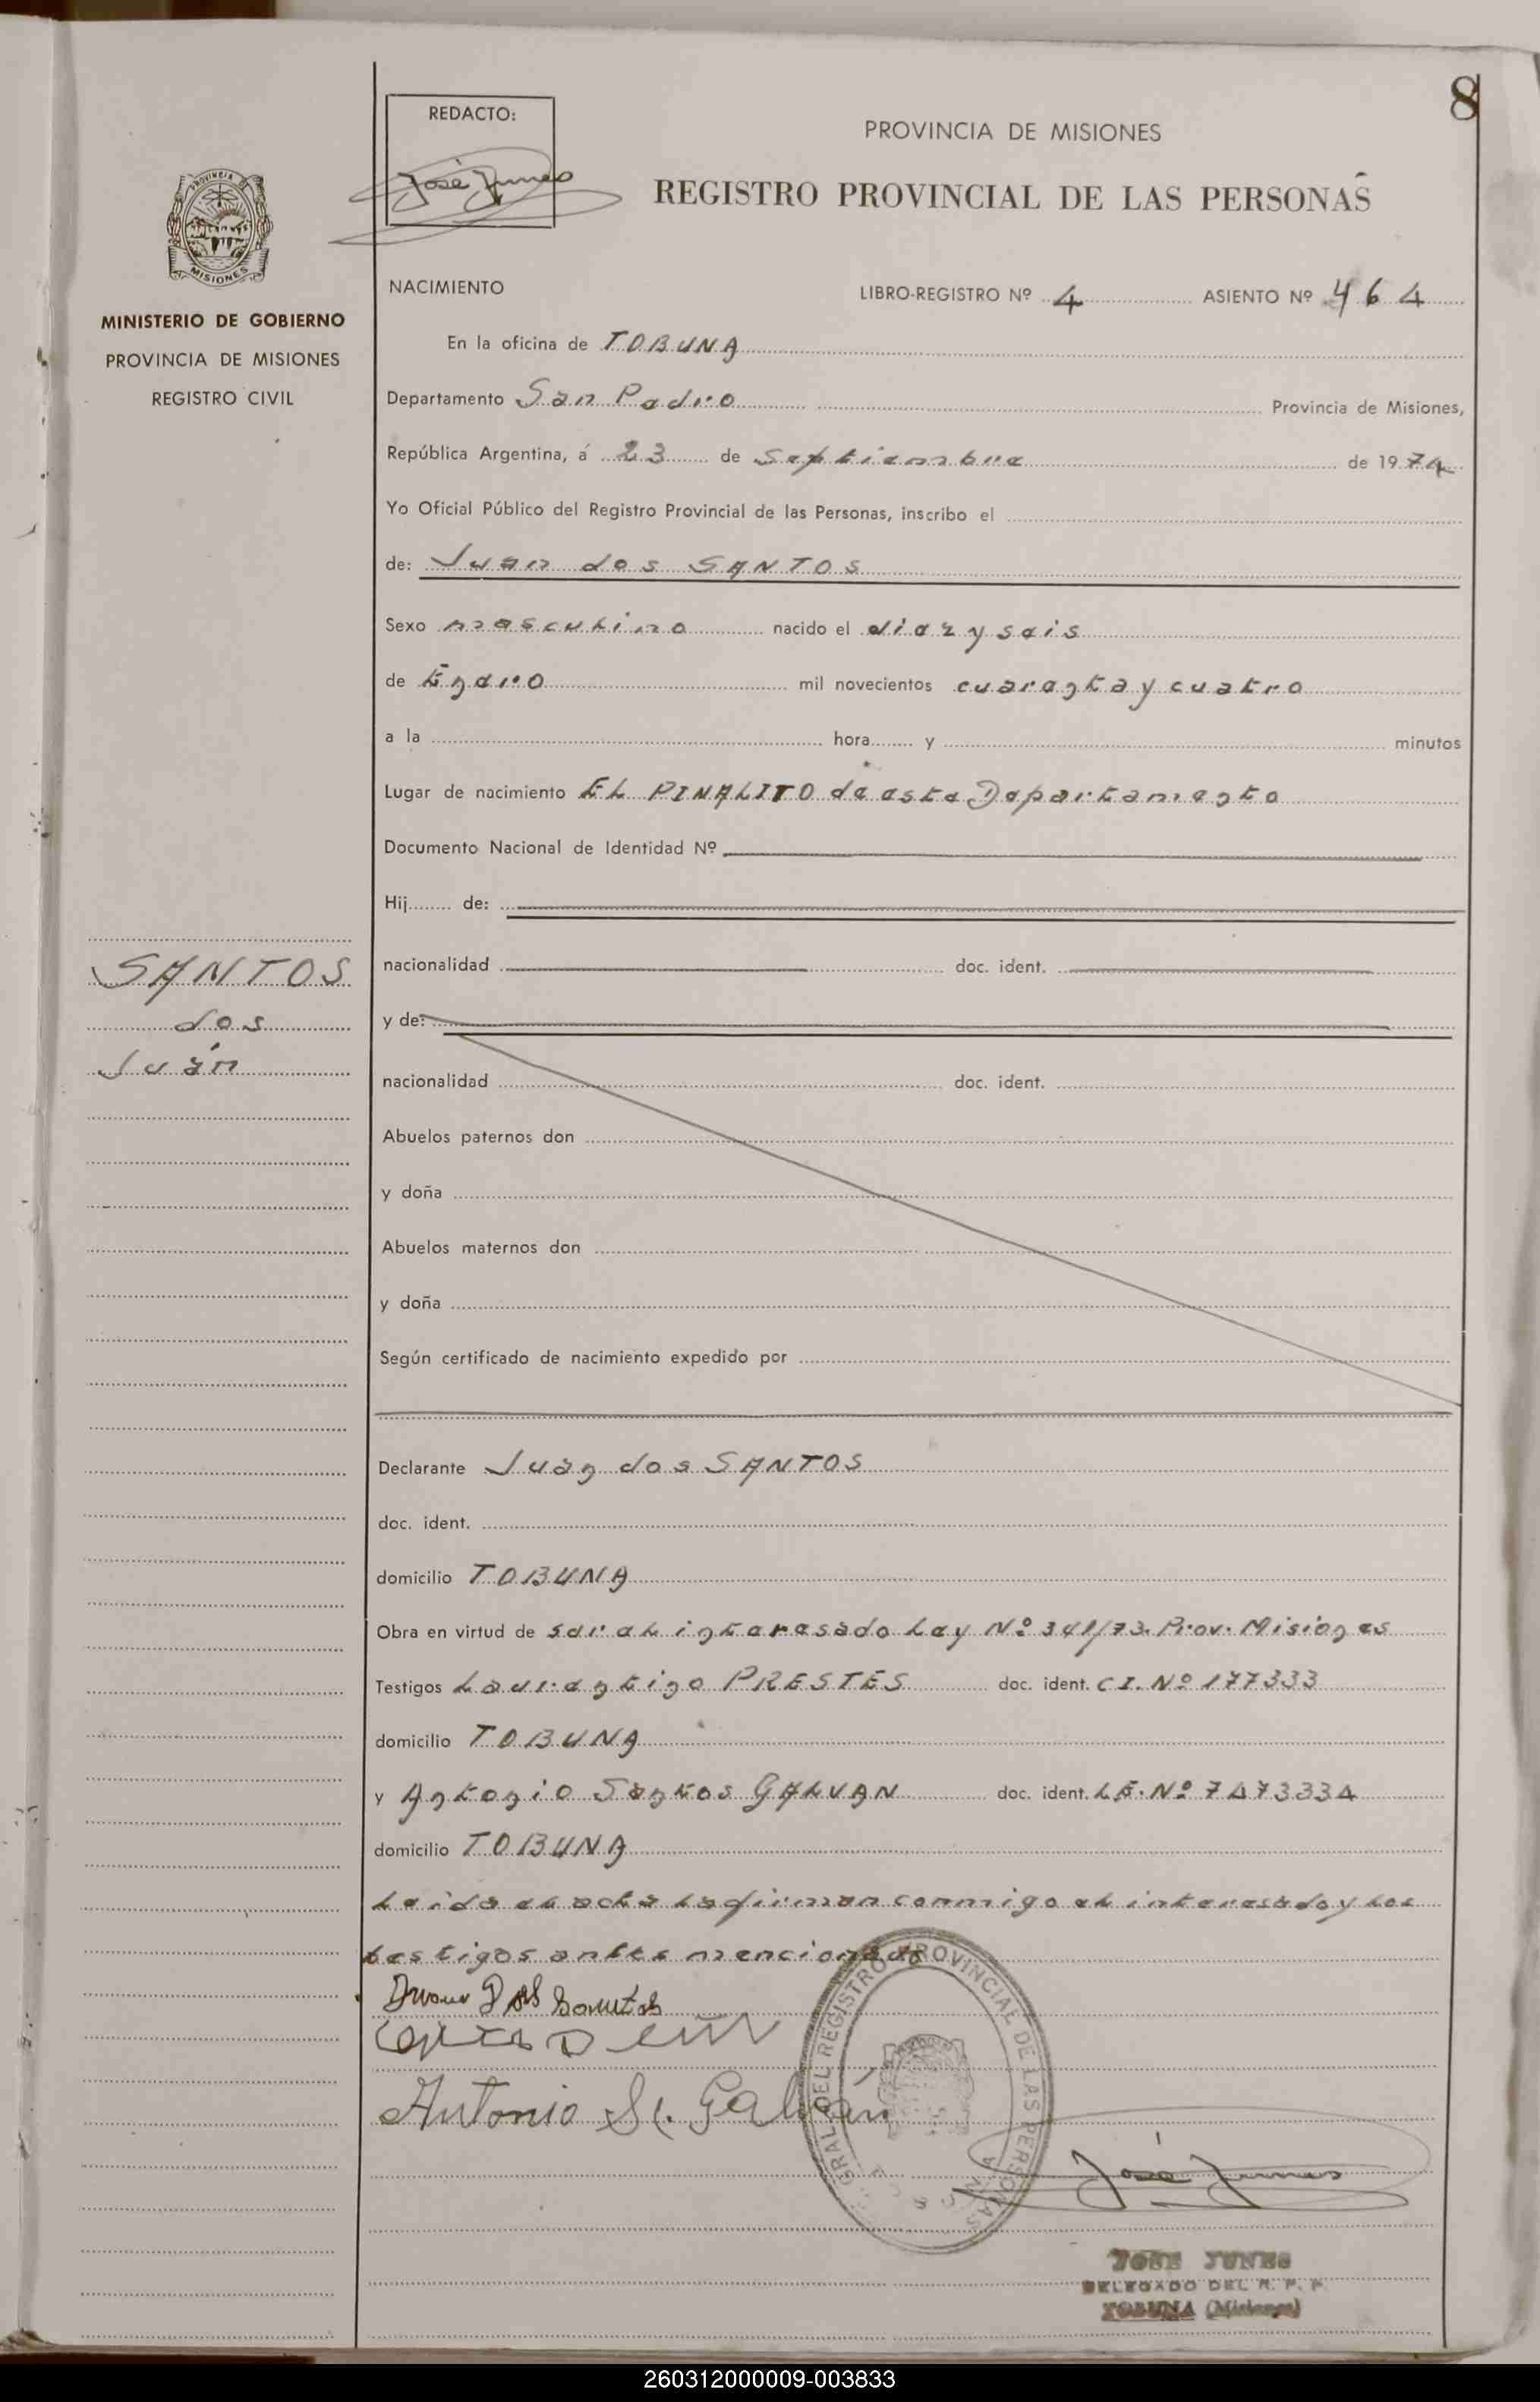 8
REDACTO:
José Junes
PROVINCIA DE MISIONES
REGISTRO PROVINCIAL DE LAS PERSONAS
PROVINCIA
MISIONES
MINISTERIO DE GOBIERNO
PROVINCIA DE MISIONES
REGISTRO CIVIL
NACIMIENTO LIBRO-REGISTRO Nº 4 ASIENTO Nº 464
En la oficina de TOBUNA
Departamento San Pedro Provincia de Misiones,
República Argentina, á 23 de Septiembre de 1974
Yo Oficial Público del Registro Provincial de las Personas, inscribo el
de: Juan dos SANTOS
Sexo masculino nacido el diez y seis
de Enero mil novecientos cuarenta y cuatro
a la hora y minutos
Lugar de nacimiento EL PINALITO de este Departamento
Documento Nacional de Identidad Nº
Hij de:
SANTOS
dos
Juán
nacionalidad doc. ident.
y de:
nacionalidad doc. ident.
Abuelos paternos don
y doña
Abuelos maternos don
y doña
Según certificado de nacimiento expedido por
Declarante Juan dos SANTOS
doc. ident.
domicilio TOBUNA
Obra en virtud de ser el interesado Ley Nº 341/73. Prov. Misiones
Testigos Laurentino PRESTES doc. ident. CI. Nº 177333
domicilio TOBUNA
y Antonio Santos GALVAN doc. ident. LE. Nº 7473334
domicilio TOBUNA
Leida el acta la firman conmigo el interesado y los
testigos antes mencionado
Antonio S. Galván
GRAL DEL REGISTRO PROVINCIAL DE LAS PERSONAS
José Junes
JOSE JUNES
DELEGADO DEL R. P. P.
TOBUNA (Misiones)
260312000009-003833